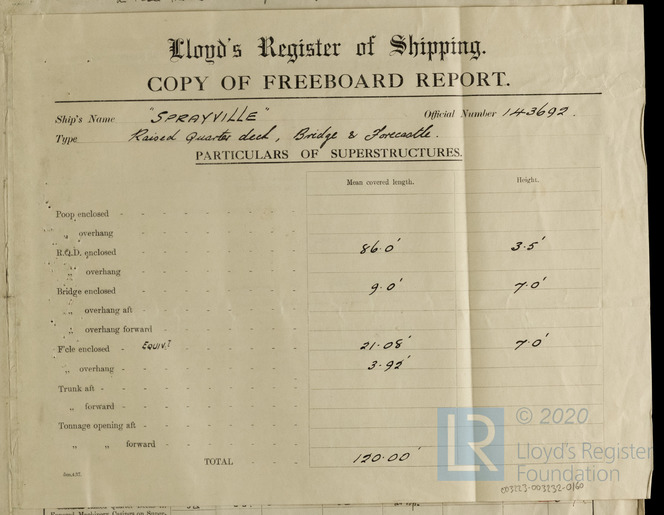 Lloyd's Register of Shipping.
COPY OF FREEBOARD REPORT.
Ship's Name "SPRAYVILLE" Official Number 143692.
Type Raised Quarter deck, Bridge & Forecastle.
PARTICULARS OF SUPERSTRUCTURES.
Mean covered length. Height.
Poop enclosed
„ overhang
R.Q.D. enclosed 86.0' 3.5'
„ overhang
Bridge enclosed 9.0' 7.0'
„ overhang aft
„ overhang forward
F'cle enclosed EQUIVT 21.08' 7.0'
„ overhang 3.92'
Trunk aft
„ forward
Tonnage opening aft
„ „ forward
TOTAL 120.00'
LR © 2020
Lloyd's Register
Foundation
003223-003232-0160